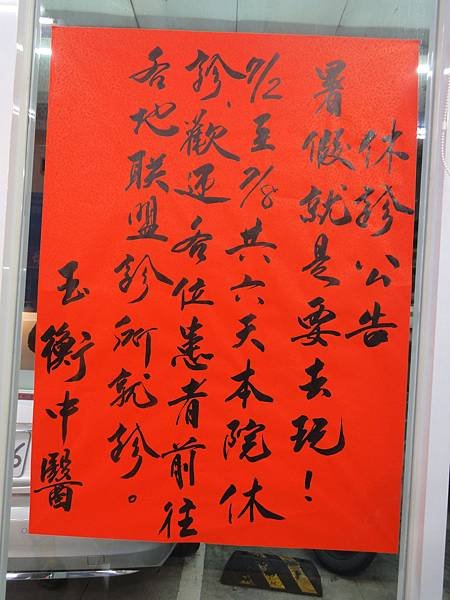 休診公告
暑假就是要去玩！
7/2至7/8共六天本院休
診、歡迎各位患者前往
各地联盟診所就診。
玉衡中醫